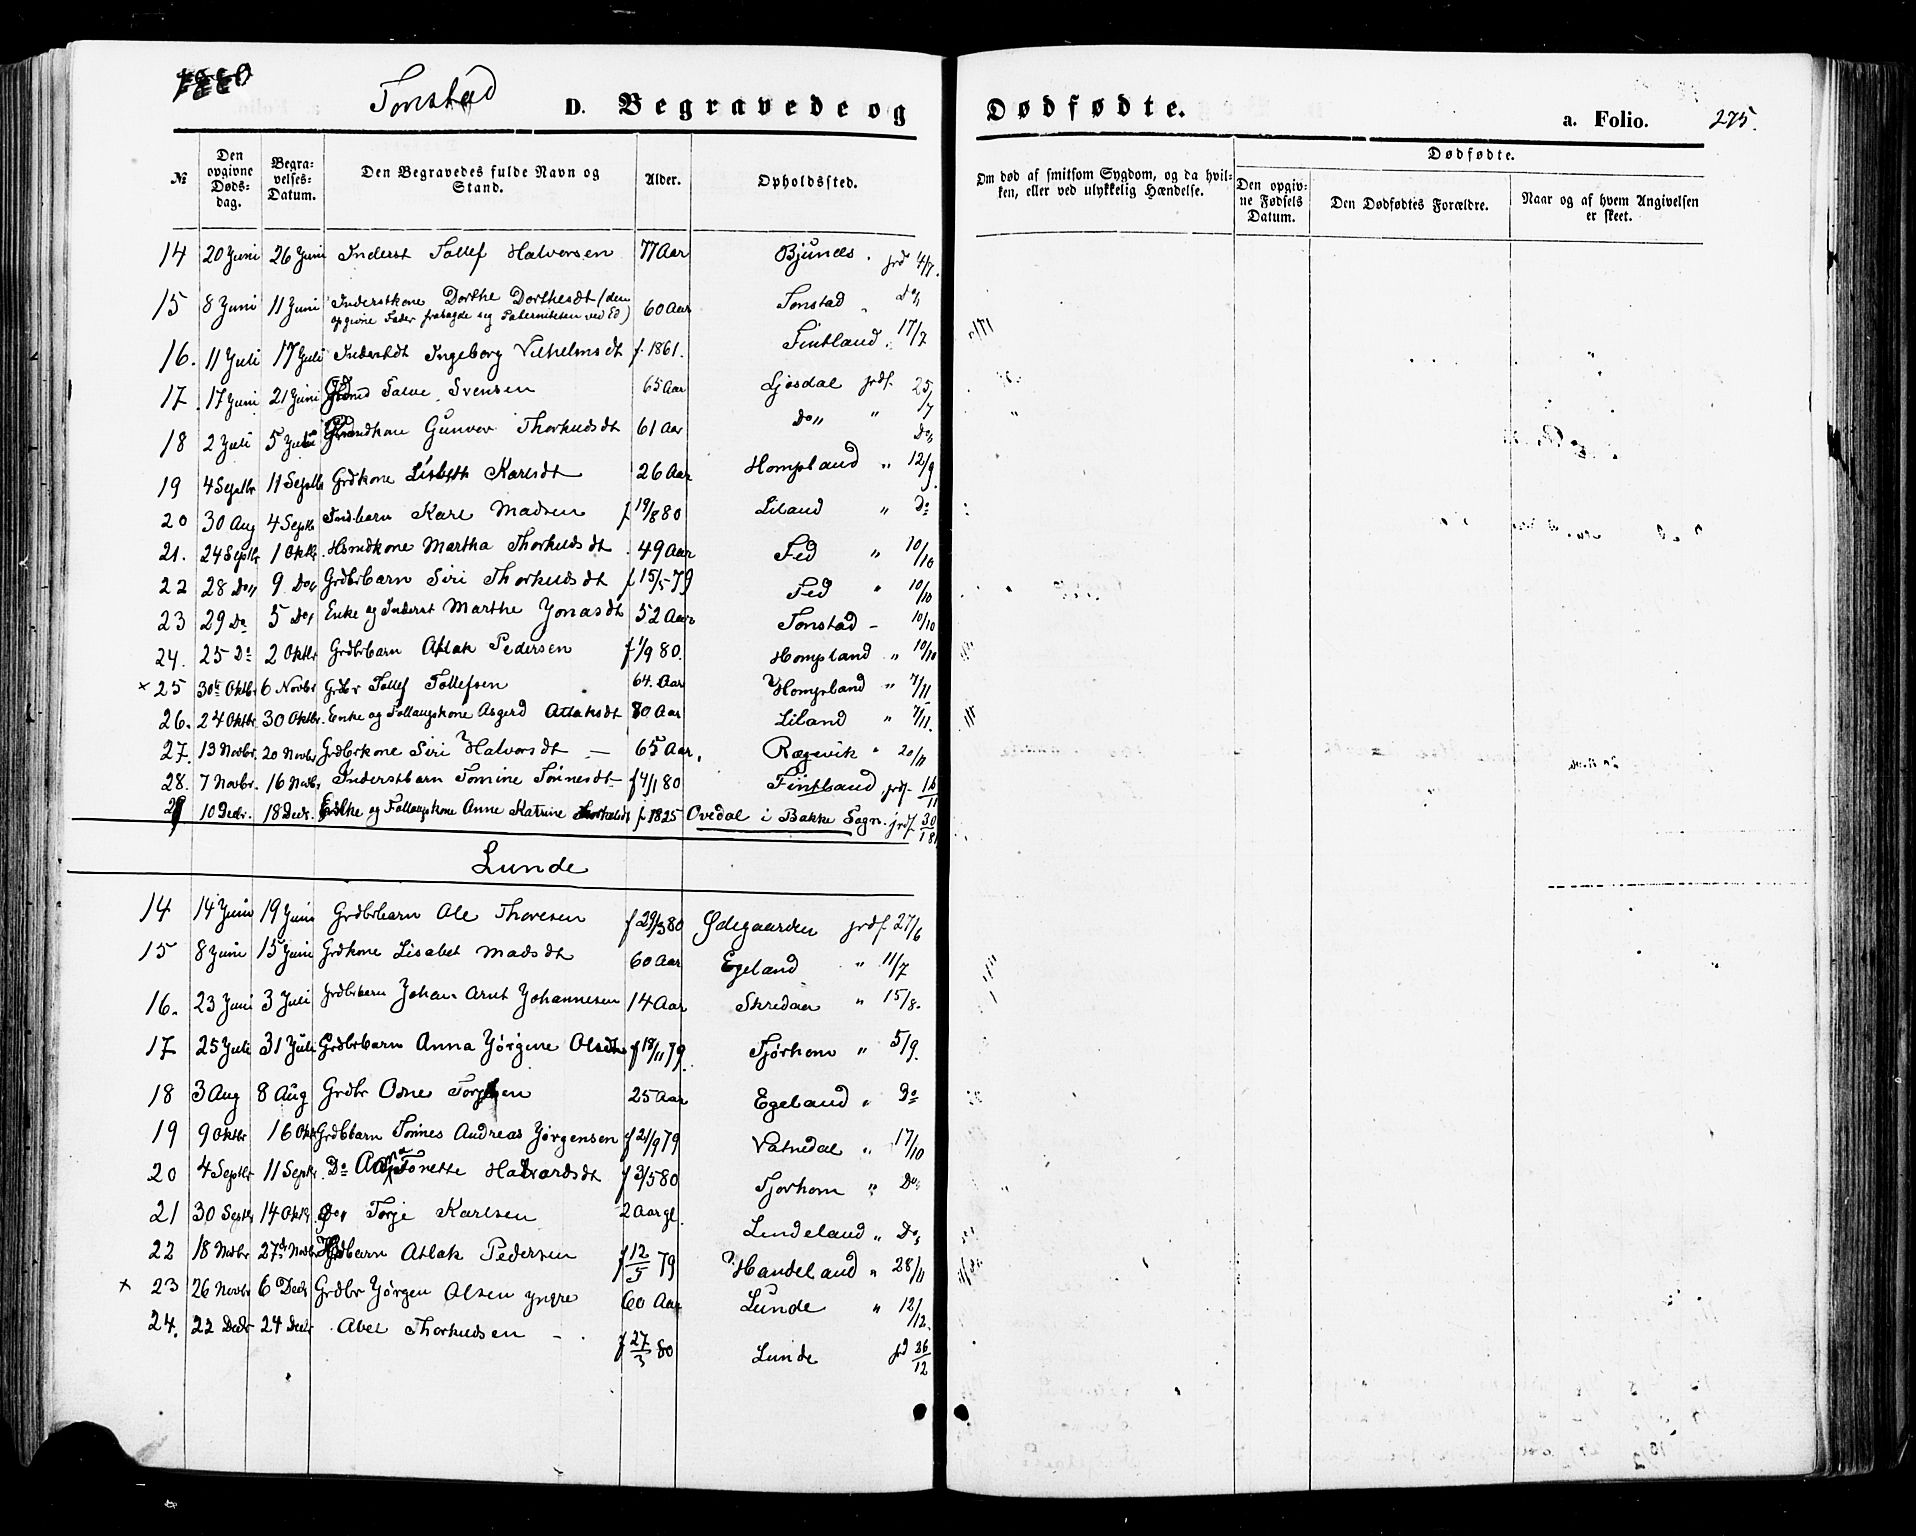 1880
Tonstad D. Begravede og Dødfødte. a. Folio. 275.
№ Den opgivne Dødsdag. Begravelses-Datum. Den Begravedes fulde Navn og Stand. Alder. Opholdssted. Om død af smitsom Sygdom, og da hvilken, eller ved ulykkelig Hændelse. Dødfødte. Den opgivne Fødsels Datum. Den Dødfødtes Forældre. Naar og af hvem Angivelsen er skeet.
14 20 Juni 26 Juni Inderst Tollef Halvorsen 77 Aar Bjunes. jrd 4/7.
15 8 Juni 11 Juni Inderstkone Dorthe Dorthesdt (den opgivne Fader fralagde sig Paterniteten ved Ed) 60 Aar Tonstad Do
16. 11 Juli 17 Juli Inderstdt Ingeborg Vilhelmsdt f. 1861. Fintland " 17/7
17. 17 Juni 21 Juni Salve Svensen 65 Aar Ljosdal jrdf. 25/7
18 2 Juli 5 Juli Gunvor Thorkildsdt 61 Aar Do " Do
19 4 Septbr 11 Septb Grdkone Lisbeth Karlsdt 26 Aar Hompland " 12/9.
20 30 Aug 4 Septb Indbarn Karl Madsen f 19/8 80 Liland " Do
21. 24 Septbr 1 Oktbr Hsmdkone Martha Thorkildsdt 49 Aar Fed " 10/10
22 28 Do 9 Do Grdbrbarn Siri Thorkildsdt f 15/5-79 Fed " 10/10
23 29 Do 5 Do Enke og Inderst Marthe Jonasdt 52 Aar Tonstad - 10/10
24. 25 Do 2 Oktbr Grdbrbarn Atlak Pedersen f 1/9 80. Hompland " 10/10
× 25 30te Oktbr 6 Novbr Grdbr Tollef Tollefsen 64. Aar Hompland " 7/11
26. 24 Oktbr 30 Oktbr. Enke og Follaugskone Asgerd Atlaksdt 80 Aar Liland " 7/11.
27. 13 Novbr. 20 Novbr Grdbrkone Siri Halvorsdt — 65 Aar. Rægevik " 20/11
28. 7 Novbr. 16 Novbr Inderstbarn Tomine Tønnesdt f 4/1 80 Fintland jrdf. 16/11
29 10 Decbr. 18 Decb. Enke og Follaugskone Anne Katrine Thorkildsd f. 1825 Ovedal i Bakke Sogn. jrdf 30/1 81
Lunde
14 14 Juni 19 Juni Grdbrbarn Ole Thoresen f 29/3 80 Ødegaarden jrdf. 27/6
15 8 Juni 15 Juni Grdkone Lisabet Madsdt 60 Aar Egeland " 11/7
16. 23 Juni 3 Juli Grdbrbarn Johan Arnt Johannesen 14 Aar Skredaa " 15/8.
17 25 Juli 31 Juli Grdbrbarn Anna Jørgine Olsdtr f 18/11 79. Tjørhom " 5/9.
18 3 Aug 8 Aug Grdbr Osne 25 Aar Egeland " Do
19 9 Oktbr 16 Okt Grdbbarn Tønnes Andreas Jørgensen f 21/9 79 Vatnedal " 17/10
20 4 Septbr 11 Septbr. Do Anna Tonette Halvardsdt f 3/5 80 Tjorhom " Do
21 30 Septbr 14 Oktbr Do Terje Karlsen 2 Aar gl. Lindeland " Do
22 18 Novbr 27de Novbr barn Atlak Pedersen f 12/5 79 Handeland " 28/11
× 23 26 Novbr 6 Decb Grdbr Jørgen Olsen yngre 60 Aar Lunde " 12/12.
24. 22 Decbr 24 Decbr Abel Thorkildsen — f 27/3 80 Lunde jd 26/12